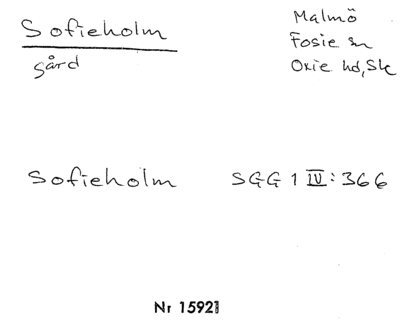 Sofieholm
gård
Malmö
Fosie sn
Oxie hd, Sk
Sofieholm SGG 1 IV: 366
Nr 15921